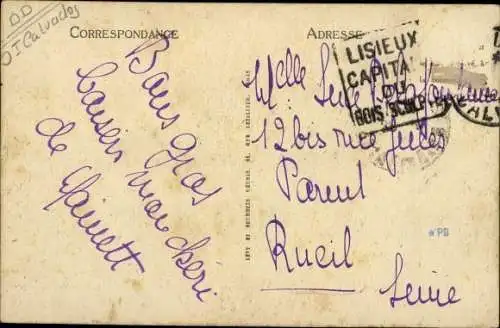 DD
DI Calvados
CORRESPONDANCE
Bons gros
baisers mon chéri
de
ADRESSE
LISIEUX
CAPITALE
DU
BOIS SCULPTÉ
Melle
12 bis rue Jules
Parent
Rueil
Seine
*PB